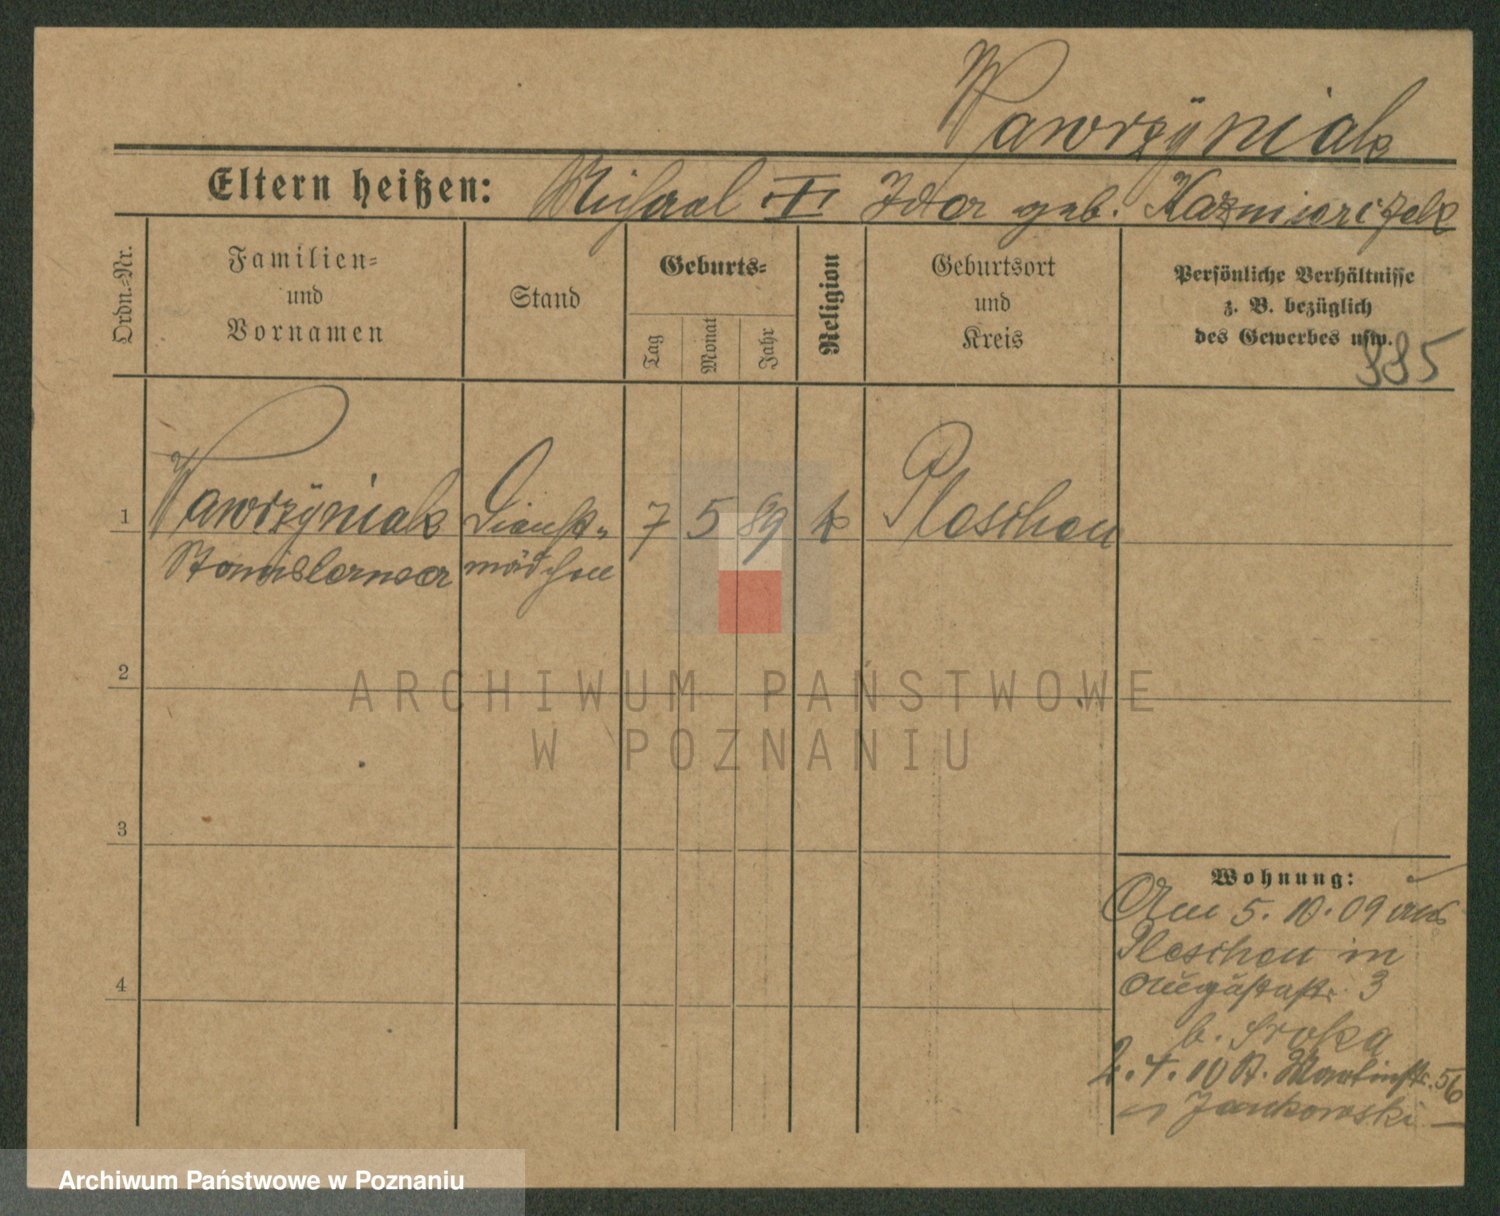 Wawrzÿniak
Eltern heißen: Michael Ida geb. Kazmierczak
Ordn.-Nr.
Familien-
und
Vornamen
Stand
Geburts-
Tag
Monat
Jahr
Religion
Geburtsort
und
Kreis
Persönliche Verhältnisse
z. B. bezüglich
des Gewerbes usw.
985
1 Wawrzÿniak Dienst- 7 5 89 k Pleschen
Stanislawa mädchen
2
ARCHIWUM PAŃSTWOWE
W POZNANIU
3
Wohnung:
Am 5. 10. 09 aus
Pleschen in
Augustastr. 3
b. Sroka
2. 4. 10 St. Martinstr. 56
Jankowski
4
Archiwum Państwowe w Poznaniu